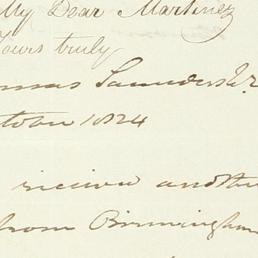 My Dear Martinez
Yours truly
omas Saunders Jr
tober 1824
receive anothe
from Birmingham